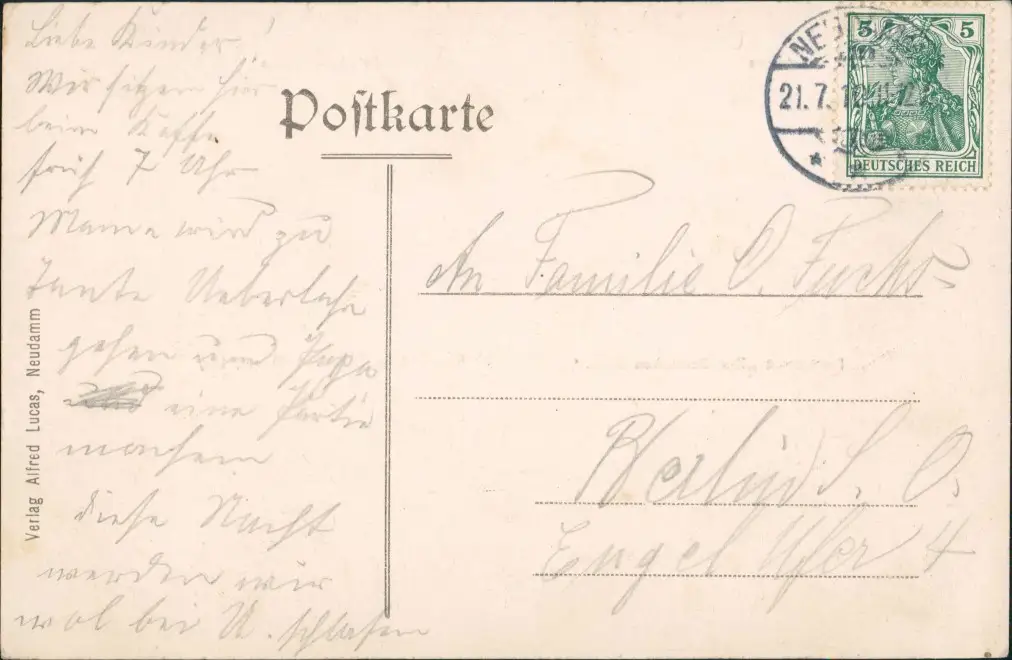 Liebe Kinder!
Wir sitzen hier
beim Kaffe
früh 7 Uhr
Mama wird zu
Tante Ueberlahr
gehen und Papa
eine Partie
machen
diese Nacht
werden wir
wol bei U. schlafen
Verlag Alfred Lucas, Neudamm
Postkarte
5 5
DEUTSCHES REICH
21.7.
An Familie O. Fuchs
Berlin S. O.
Engel Ufer 4